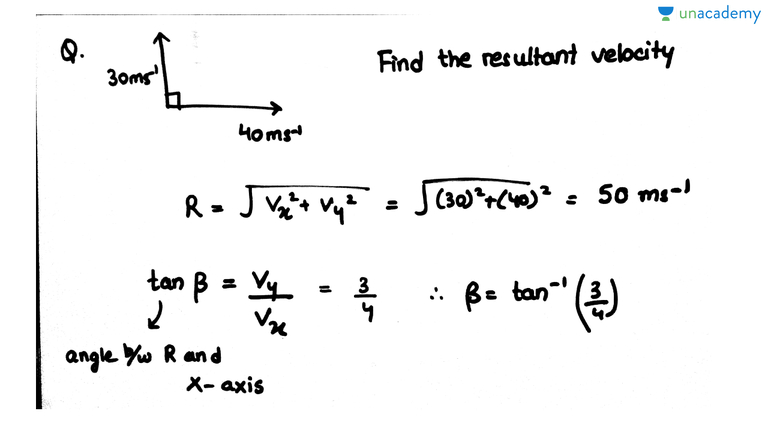 unacademy
Q.
30ms⁻¹
40ms⁻¹
Find the resultant velocity
R = √(Vₓ² + Vy²) = √((30)²+(40)²) = 50 ms⁻¹
tan β = Vy/Vₓ = 3/4 ∴ β = tan⁻¹(3/4)
angle b/w R and
X-axis